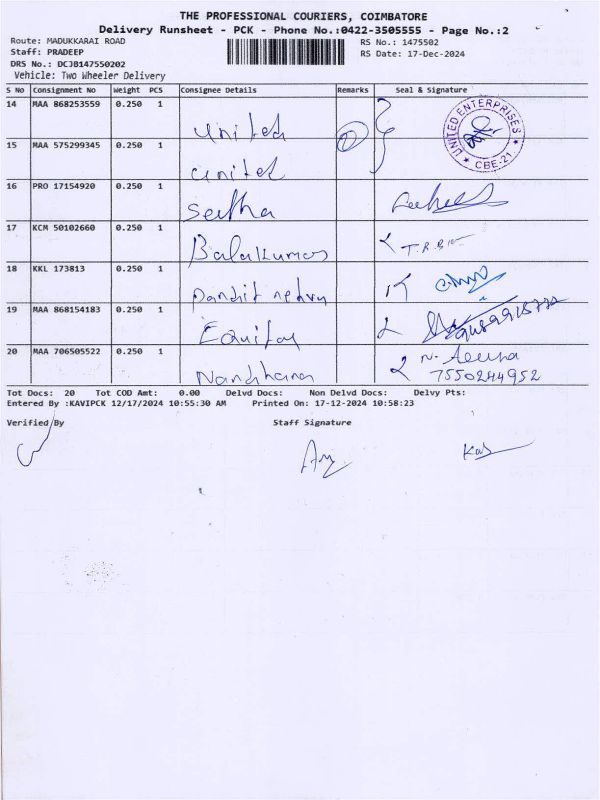 THE PROFESSIONAL COURIERS, COIMBATORE
Delivery Runsheet - PCK - Phone No.:0422-3505555 - Page No.:2
Route: MADUKKARAI ROAD
RS No.: 1475502
Staff: PRADEEP
RS Date: 17-Dec-2024
DRS No.: DCJB147550202
Vehicle: Two Wheeler Delivery
S No Consignment No Weight PCS Consignee Details Remarks Seal & Signature
14 MAA 868253559 0.250 1 United
UNITED ENTERPRISES
CBE-21
15 MAA 575299345 0.250 1 United
16 PRO 17154920 0.250 1 Seetha
17 KCM 50102660 0.250 1 Balakumar
18 KKL 173813 0.250 1 Pandit nehru
19 MAA 868154183 0.250 1 Equitas
20 MAA 706505522 0.250 1 Nandhana
7550244952
Tot Docs: 20 Tot COD Amt: 0.00 Delvd Docs: Non Delvd Docs: Delvy Pts:
Entered By :KAVIPCK 12/17/2024 10:55:30 AM Printed On: 17-12-2024 10:58:23
Verified By Staff Signature